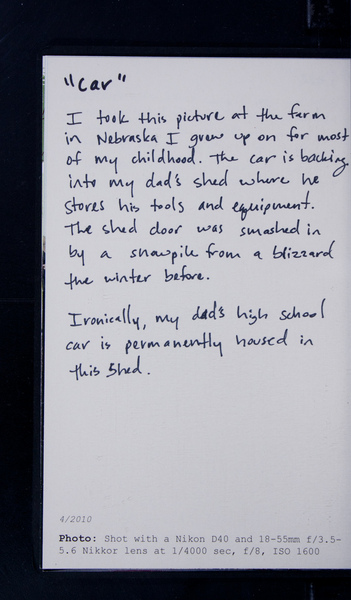 "Car"
I took this picture at the farm
in Nebraska I grew up on for most
of my childhood. The car is backing
into my dad's shed where he
stores his tools and equipment.
The shed door was smashed in
by a snowpile from a blizzard
the winter before.
Ironically, my dad's high school
car is permanently housed in
this shed.
4/2010
Photo: Shot with a Nikon D40 and 18-55mm f/3.5-
5.6 Nikkor lens at 1/4000 sec, f/8, ISO 1600